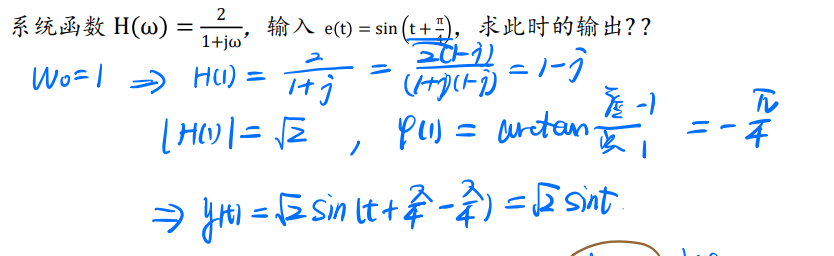 系统函数 H(ω) = 2/(1+jω), 输入 e(t) = sin(t + π/4), 求此时的输出??
W₀=1 ⇒ H(1) = 2/(1+j) = 2(1-j)/((1+j)(1-j)) = 1-j
|H(1)| = √2 , φ(1) = arctan -1/1 = -π/4
⇒ y(t) = √2 sin(t+π/4-π/4) = √2 sint